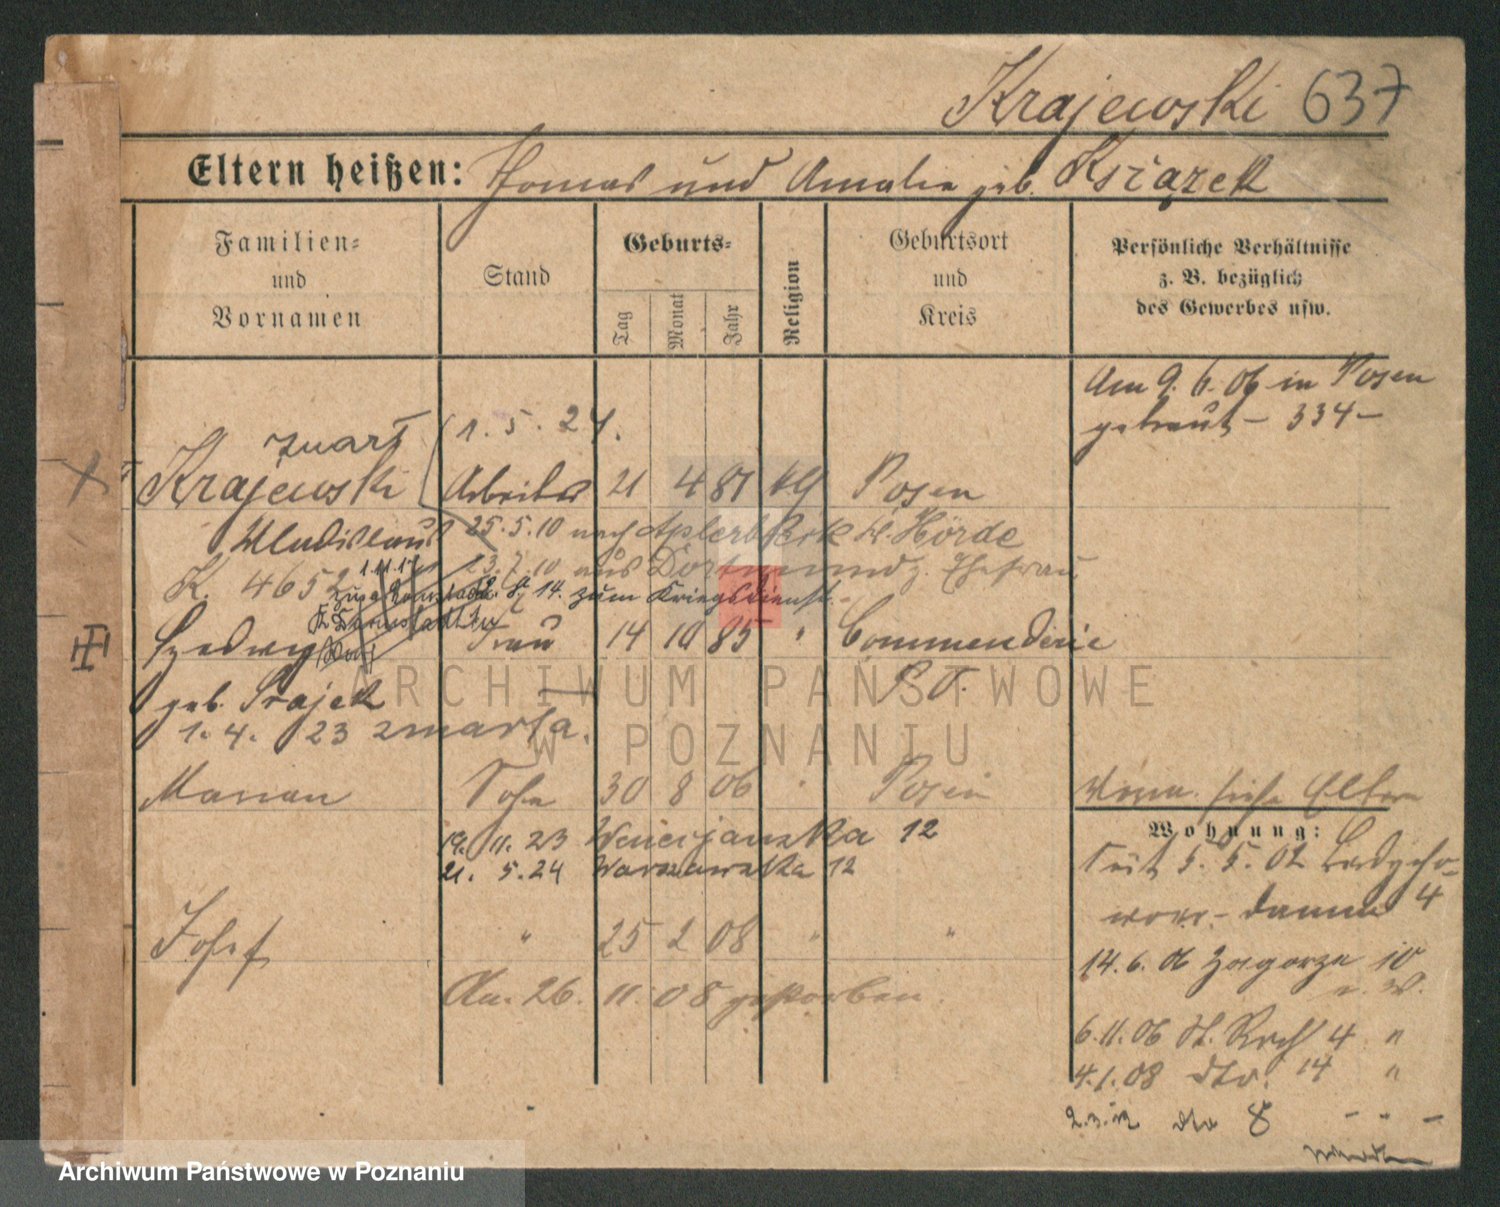 Krajewski 637
Eltern heißen: Thomas und Amalie geb. Książek
Familien-
und
Vornamen
Stand
Geburts-
Tag
Monat
Jahr
Religion
Geburtsort
und
Kreis
Persönliche Verhältnisse
z. B. bezüglich
des Gewerbes usw.
Am 9. 6. 06 in Posen
getraut - 334 -
zmarł 1. 5. 24.
Krajewski Arbeiter 21 4 81 kg Posen
Wladislaus 25. 5. 10 nach Aplerbeck Kr. Hörde
K. 4652 23. 7. 10 aus Dortmund z. Ehefrau
1.11.17
8. 14. zum Kriegsdienst.
Hedwig Frau 14 10 85 " Commenderie
geb. Prajek P. O.
1. 4. 23 zmarła.
Marian Sohn 30 8 06 Posen
siehe Eltern
19. 11. 23 Wenecjanska 12
21. 5. 24 Warszawska 12
Wohnung:
Seit 5. 5. 02
damm 4
Josef " 25 2 08 " "
14. 6. 06 Zagorze 10
Am 26. 11. 08 gestorben.
6. 11. 06 4 "
4. 1. 08 dto. 14 "
dto 8 - - -
ARCHIWUM PAŃSTWOWE
W POZNANIU
Archiwum Państwowe w Poznaniu